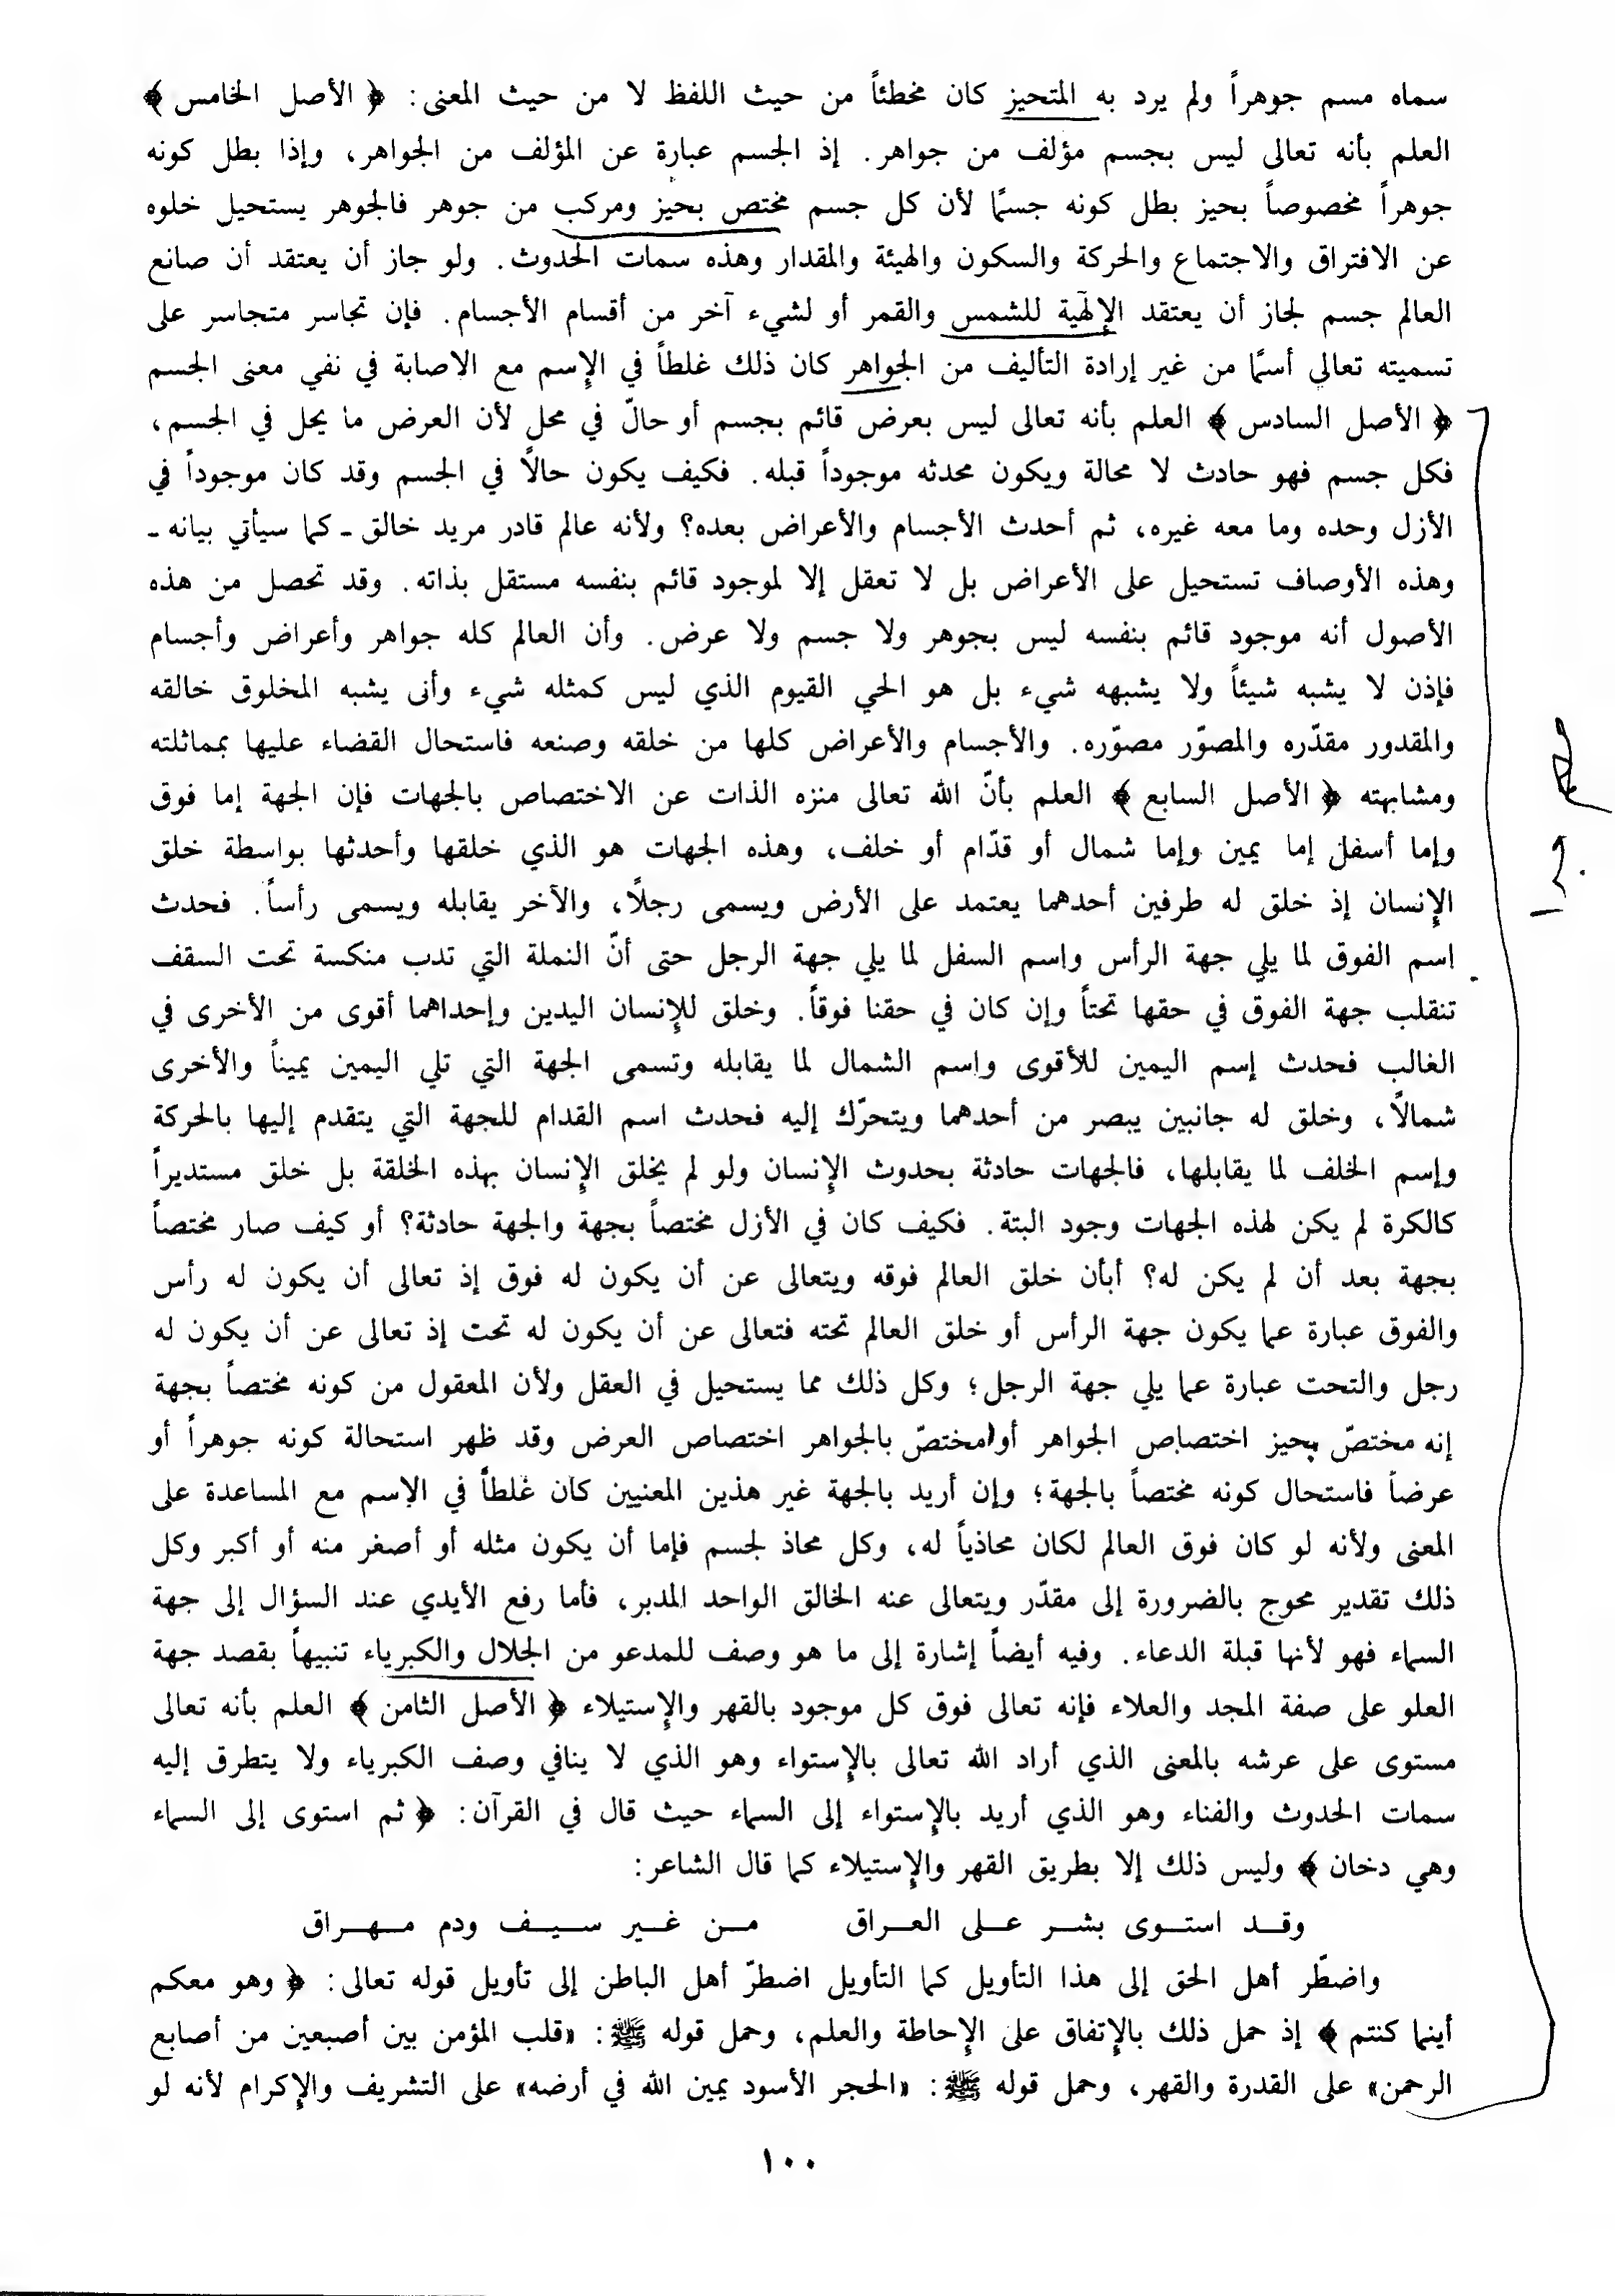 سماه مسم جوهراً ولم يرد به المتحيز كان مخطئاً من حيث اللفظ لا من حيث المعنى: ﴿ الأصل الخامس ﴾
العلم بأنه تعالى ليس بجسم مؤلف من جواهر. إذ الجسم عبارة عن المؤلف من الجواهر، وإذا بطل كونه
جوهراً مخصوصاً بحيز بطل كونه جسمًا لأن كل جسم مختص بحيز ومركب من جوهر فالجوهر يستحيل خلوه
عن الافتراق والاجتماع والحركة والسكون والهيئة والمقدار وهذه سمات الحدوث. ولو جاز أن يعتقد أن صانع
العالم جسم لجاز أن يعتقد الإلهية للشمس والقمر أو لشيء آخر من أقسام الأجسام. فإن تجاسر متجاسر على
تسميته تعالي أسمًا من غير إرادة التأليف من الجواهر كان ذلك غلطاً في الإسم مع الاصابة في نفي معنى الجسم
﴿ الأصل السادس ﴾ العلم بأنه تعالى ليس بعرض قائم بجسم أو حالّ في محل لأن العرض ما يحل في الجسم،
فكل جسم فهو حادث لا محالة ويكون محدثه موجوداً قبله. فكيف يكون حالاً في الجسم وقد كان موجوداً في
الأزل وحده وما معه غيره، ثم أحدث الأجسام والأعراض بعده؟ ولأنه عالم قادر مريد خالق ـ كما سيأتي بيانه ـ
وهذه الأوصاف تستحيل على الأعراض بل لا تعقل إلا لموجود قائم بنفسه مستقل بذاته. وقد تحصل من هذه
الأصول أنه موجود قائم بنفسه ليس بجوهر ولا جسم ولا عرض. وأن العالم كله جواهر وأعراض وأجسام
فإذن لا يشبه شيئاً ولا يشبهه شيء بل هو الحي القيوم الذي ليس كمثله شيء وأنى يشبه المخلوق خالقه
والمقدور مقدّره والمصوّر مصوّره. والأجسام والأعراض كلها من خلقه وصنعه فاستحال القضاء عليها بمماثلته
ومشابهته ﴿ الأصل السابع ﴾ العلم بأنّ الله تعالى منزه الذات عن الاختصاص بالجهات فإن الجهة إما فوق
وإما أسفل إما يمين وإما شمال أو قدّام أو خلف، وهذه الجهات هو الذي خلقها وأحدثها بواسطة خلق
الإنسان إذ خلق له طرفين أحدهما يعتمد على الأرض ويسمى رجلًا، والآخر يقابله ويسمى رأساً. فحدث
اسم الفوق لما يلي جهة الرأس واسم السفل لما يلي جهة الرجل حتى أنّ النملة التي تدب منكسة تحت السقف
تنقلب جهة الفوق في حقها تحتاً وإن كان في حقنا فوقاً. وخلق للإنسان اليدين وإحداهما أقوى من الأخرى في
الغالب فحدث إسم اليمين للأقوى واسم الشمال لما يقابله وتسمى الجهة التي تلي اليمين يميناً والأخرى
شمالاً، وخلق له جانبين يبصر من أحدهما ويتحرّك إليه فحدث اسم القدام للجهة التي يتقدم إليها بالحركة
وإسم الخلف لما يقابلها، فالجهات حادثة بحدوث الإنسان ولو لم يخلق الإنسان بهذه الخلقة بل خلق مستديراً
كالكرة لم يكن لهذه الجهات وجود البتة. فكيف كان في الأزل مختصاً بجهة والجهة حادثة؟ أو كيف صار مختصاً
بجهة بعد أن لم يكن له؟ أبأن خلق العالم فوقه ويتعالى عن أن يكون له فوق إذ تعالى أن يكون له رأس
والفوق عبارة عما يكون جهة الرأس أو خلق العالم تحته فتعالى عن أن يكون له تحت إذ تعالى عن أن يكون له
رجل والتحت عبارة عما يلي جهة الرجل؛ وكل ذلك مما يستحيل في العقل ولأن المعقول من كونه مختصاً بجهة
إنه مختصّ بحيز اختصاص الجواهر أو مختصّ بالجواهر اختصاص العرض وقد ظهر استحالة كونه جوهراً أو
عرضاً فاستحال كونه مختصاً بالجهة؛ وإن أريد بالجهة غير هذين المعنيين كان غلطاً في الاسم مع المساعدة على
المعنى ولأنه لو كان فوق العالم لكان محاذياً له، وكل محاذ لجسم فإما أن يكون مثله أو أصغر منه أو أكبر وكل
ذلك تقدير محوج بالضرورة إلى مقدّر ويتعالى عنه الخالق الواحد المدبر، فأما رفع الأيدي عند السؤال إلى جهة
السماء فهو لأنها قبلة الدعاء. وفيه أيضاً إشارة إلى ما هو وصف للمدعو من الجلال والكبرياء تنبيهاً بقصد جهة
العلو على صفة المجد والعلاء فإنه تعالى فوق كل موجود بالقهر والإستيلاء ﴿ الأصل الثامن ﴾ العلم بأنه تعالى
مستوى على عرشه بالمعنى الذي أراد الله تعالى بالإستواء وهو الذي لا ينافي وصف الكبرياء ولا يتطرق إليه
سمات الحدوث والفناء وهو الذي أريد بالإستواء إلى السماء حيث قال في القرآن: ﴿ ثم استوى إلى السماء
وهي دخان ﴾ وليس ذلك إلا بطريق القهر والإستيلاء كما قال الشاعر:
وقـد استـوى بشـر عـلى العـراق مـن غـير سـيـف ودم مـهـراق
واضطّر أهل الحق إلى هذا التأويل كما التأويل اضطرّ أهل الباطن إلى تأويل قوله تعالى: ﴿ وهو معكم
أينما كنتم ﴾ إذ حمل ذلك بالإتفاق على الإحاطة والعلم، وحمل قوله ﷺ: «قلب المؤمن بين أصبعين من أصابع
الرحمن» على القدرة والقهر، وحمل قوله ﷺ: «الحجر الأسود يمين الله في أرضه» على التشريف والإكرام لأنه لو
١٠٠